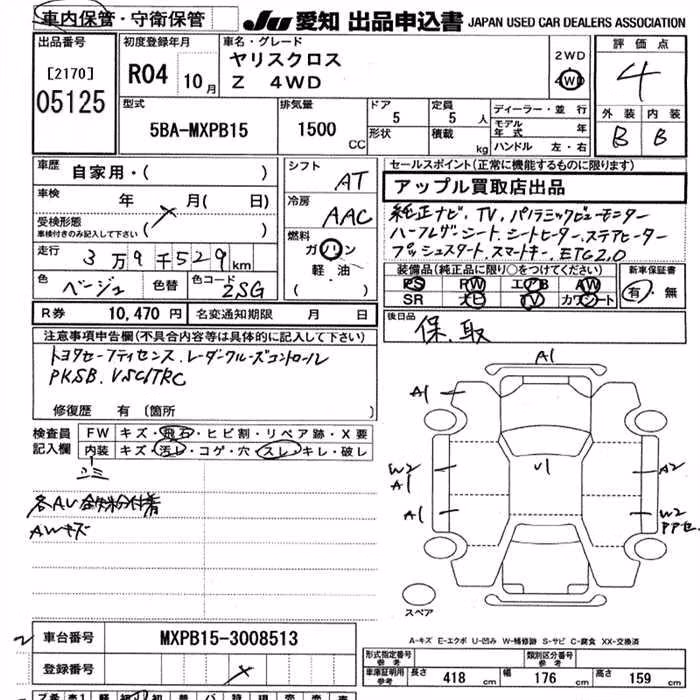 車内保管・守衛保管
JU 愛知 出品申込書 JAPAN USED CAR DEALERS ASSOCIATION
出品番号
[2170]
05125
初度登録年月
R04 10月
車名・グレード
ヤリスクロス
Z 4WD
2WD
4WD
評価点
4
外装 内装
B B
型式
5BA-MXPB15
排気量
1500 CC
ドア
5
形状
定員
5 人
積載 kg
ディーラー・並行
モデル年式 年
ハンドル 左・右
車歴 自家用・( )
車検 年 月( 日)
受検形態
車検付きのみ記入して下さい ( )
走行 3万9千529km
色 ベージュ 色替 色コード 2SG
シフト AT
冷房 AAC
燃料
ガソリン
軽油
( )
R券 10,470 円 名変通知期限 月 日
セールスポイント(正常に機能するものに限ります)
アップル買取店出品
純正ナビ、TV、パノラミックビューモニター
ハーフレザーシート、シートヒーター、ステアヒーター
プッシュスタート、スマートキー、ETC2.0
装備品(純正品に限り○をつけてください)
PS PW エアB AW
SR ナビ TV カワシート
新車保証書
有・無
後日品
保、取
注意事項申告欄(不具合内容等は具体的に記入して下さい)
トヨタセーフティセンス、レーダークルーズコントロール
PKSB、VSC/TRC
修復歴 有 (箇所 )
検査員記入欄
FW キズ・飛石・ヒビ割・リペア跡・X要
内装 キズ・汚レ・コゲ・穴・スレ・キレ・破レ
AWキズ
A1
A1
W2
A1
A1
U1
A2
W2
スペア
A-キズ E-エクボ U-凹み W-補修跡 S-サビ C-腐食 XX-交換済
車台番号 MXPB15-3008513
登録番号
形式指定番号
参考
類別区分番号
参考
車庫証明用
参考
長さ 418 cm 幅 176 cm 高さ 159 cm